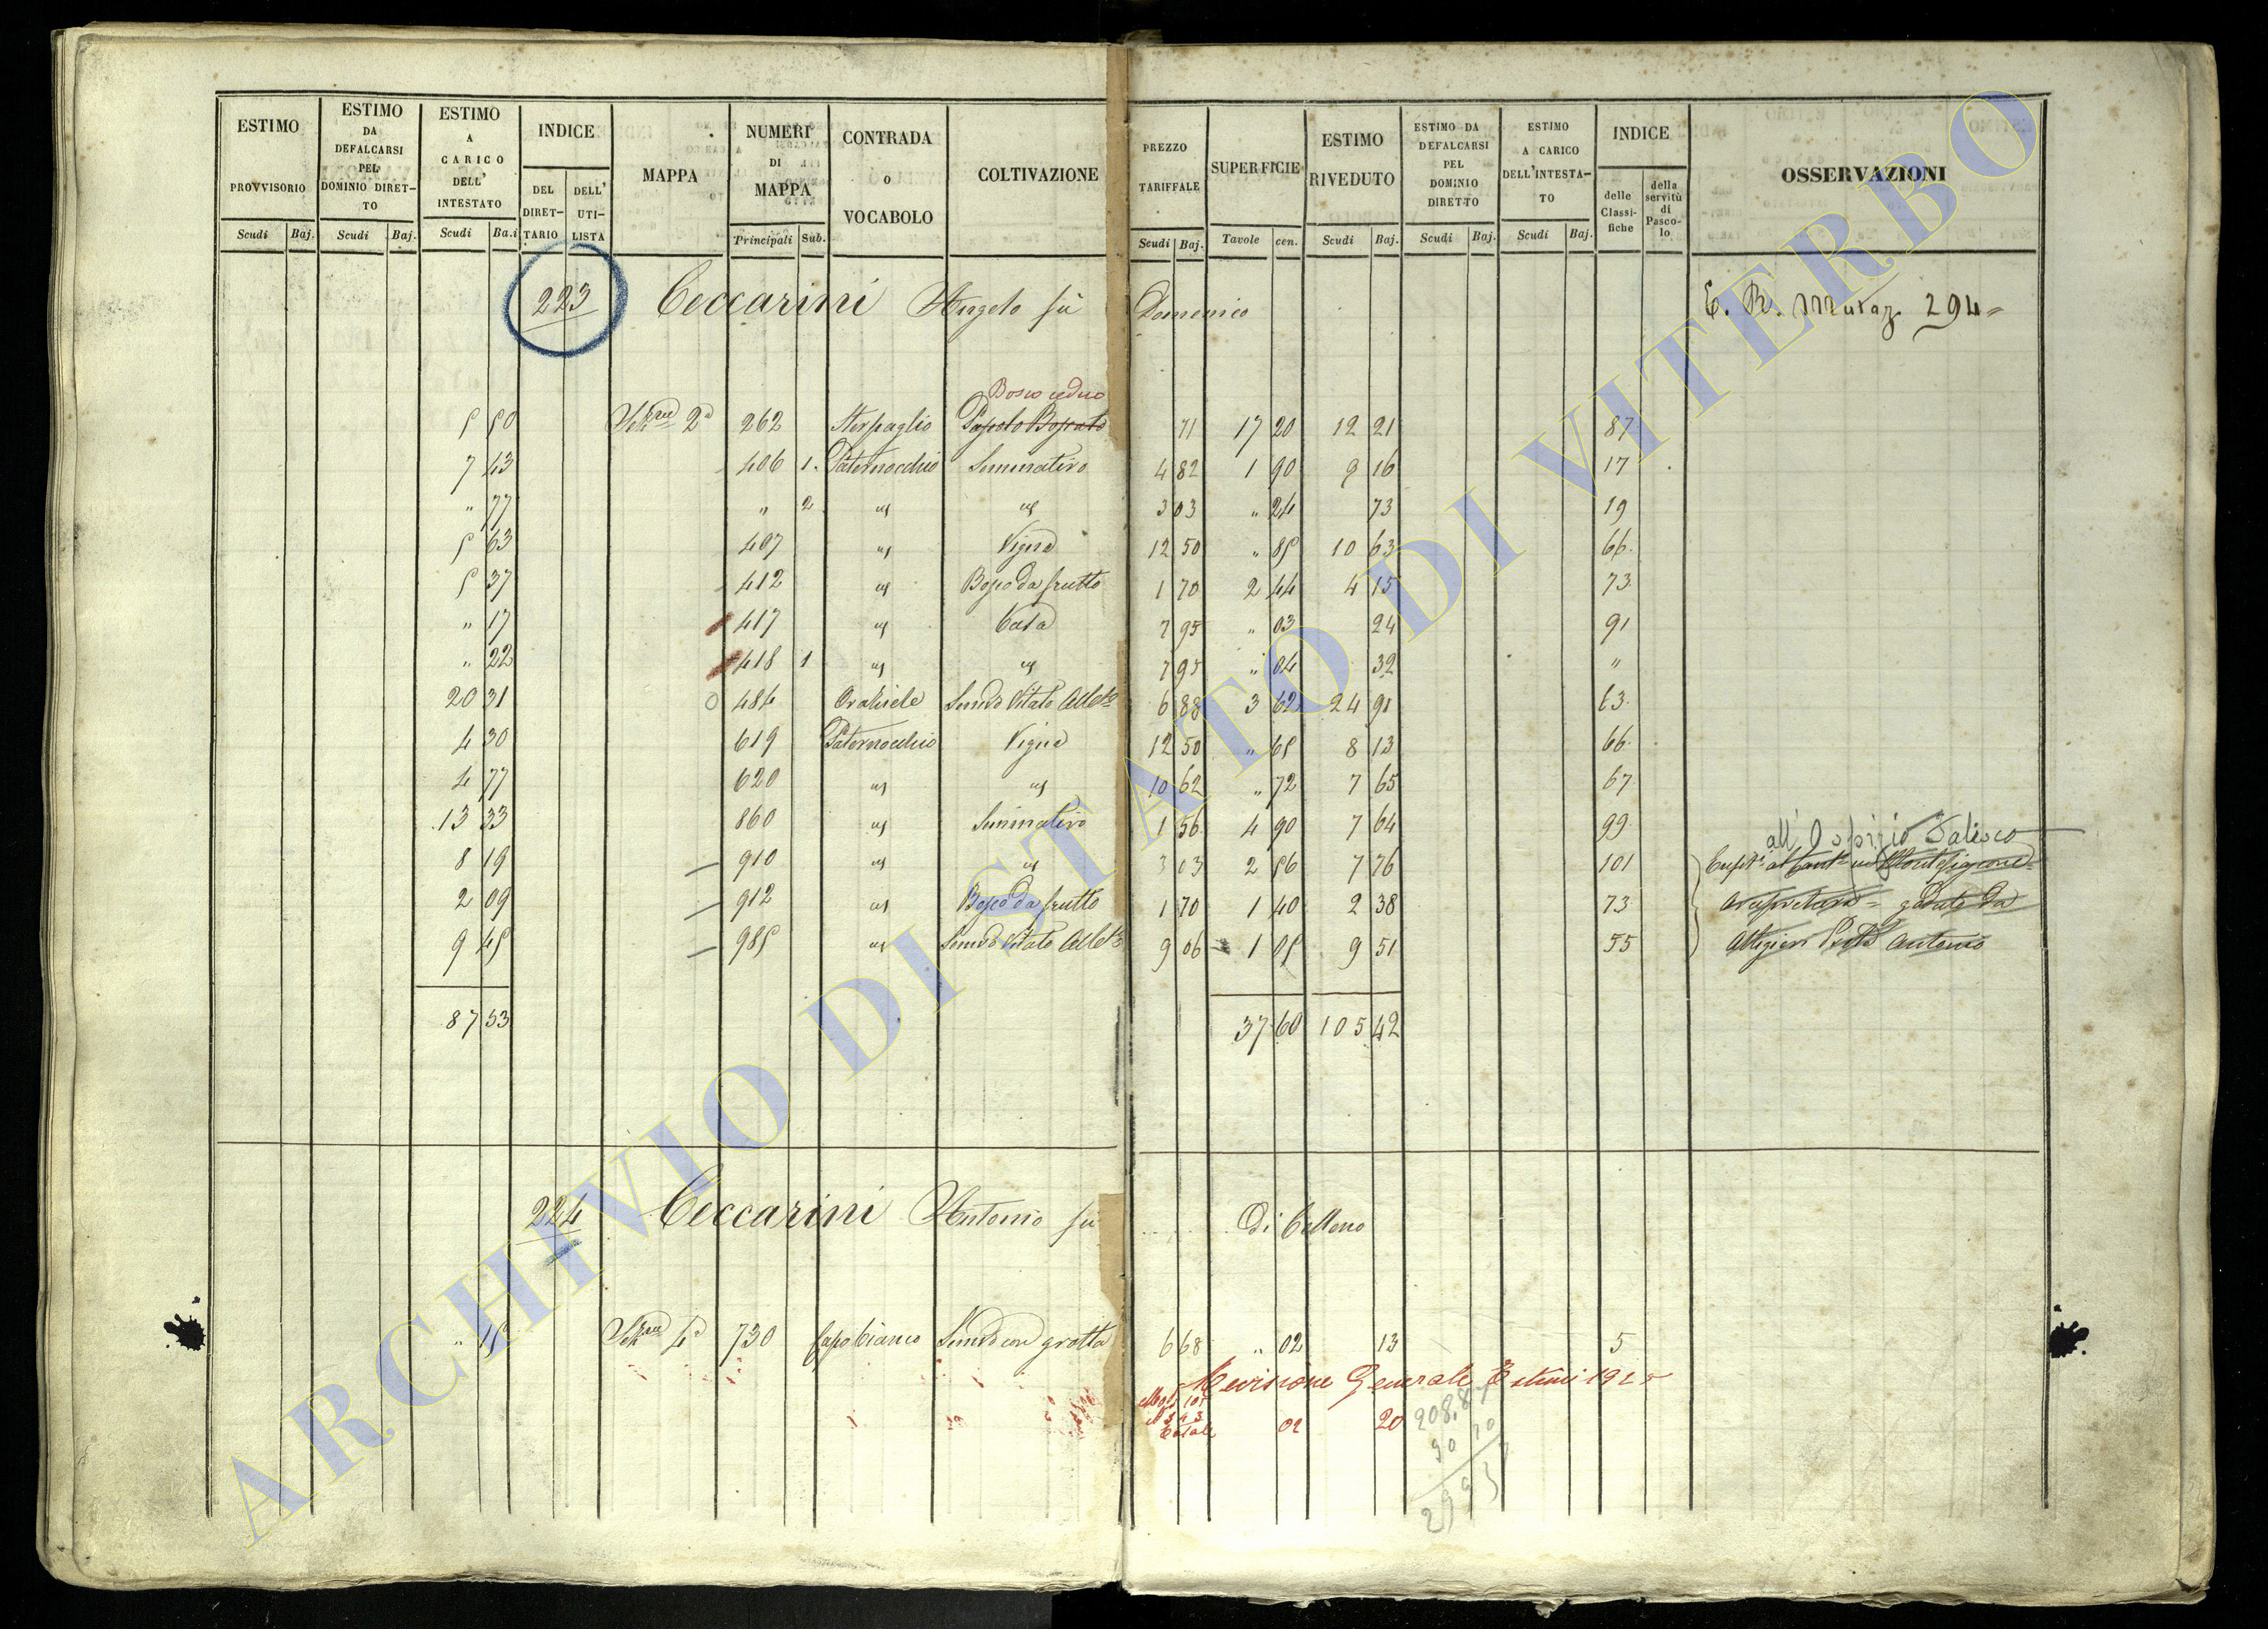 ESTIMO PROVVISORIO
Scudi Baj.
ESTIMO DA DEFALCARSI PEL DOMINIO DIRETTO
Scudi Baj.
ESTIMO A CARICO DELL' INTESTATO
Scudi Ba.i
INDICE
DEL DIRETTARIO
DELL' UTILISTA
MAPPA
NUMERI DI MAPPA
Principali Sub.
CONTRADA o VOCABOLO
COLTIVAZIONE
PREZZO TARIFFALE
Scudi Baj.
SUPERFICIE
Tavole cen.
ESTIMO RIVEDUTO
Scudi Baj.
ESTIMO DA DEFALCARSI PEL DOMINIO DIRETTO
Scudi Baj.
ESTIMO A CARICO DELL'INTESTATO
Scudi Baj.
INDICE
delle Classifiche
della servitù di Pascolo
OSSERVAZIONI
223 Ceccarini Angelo fù Domenico E. R. Mutaz. 294
Bosco ceduo
5 50 2a 262 Sterpaglio Pascolo Boscato 71 17 20 12 21 87
7 43 406 1. Paternocchio Seminativo 4 82 1 90 9 16 17
" 77 " 2 3 03 " 24 73 19
5 63 407 Vigna 12 50 " 85 10 63 66
5 37 412 Bosco da frutto 1 70 2 44 4 15 73
" 17 417 Casa 7 95 " 03 24 91
" 22 418 1 7 95 " 04 32 "
20 31 484 Semvo Vitato 6 88 3 62 24 91 63
4 30 619 Paternocchio Vigna 12 50 " 65 8 13 66
4 77 620 10 62 " 72 7 65 67
13 33 860 Seminativo 1 56 4 90 7 64 99
all'Ospizio
8 19 910 3 03 2 56 7 76 101
2 09 912 Bosco da frutto 1 70 1 40 2 38 73
9 45 985 Semvo Vitato 9 06 1 05 9 51 55 Antonio
87 53 37 60 105 42
224 Ceccarini Antonio fù Di Celleno
" 15 4a 730 Capobianco Semvo con grotta 6 68 " 02 13 5
Revisione Generale Estimi 192
Totale 02 20
ARCHIVIO DI STATO DI VITERBO